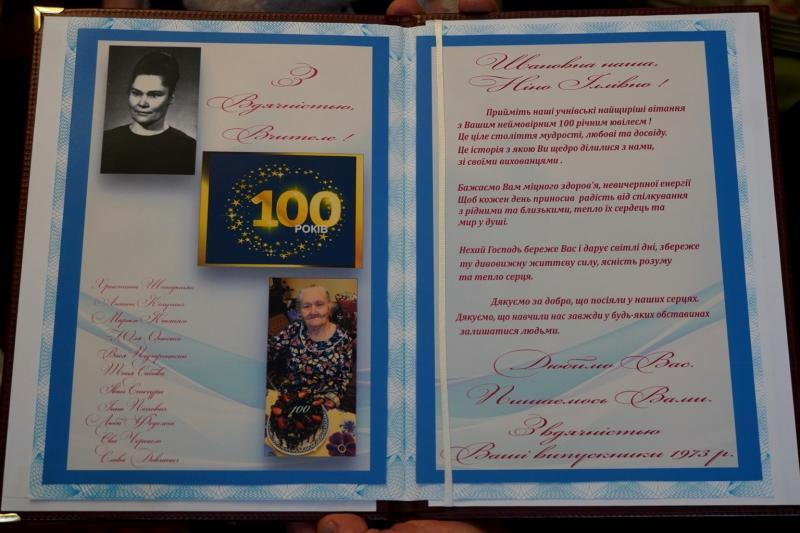 З
Вдячністю,
Вчителе !
100
РОКІВ
100
Христина
Марія
Юля
Вася
Таня
Іван
Люба
Ева
Слава
Шановна наша,
Ніно Іллівно !
Прийміть наші учнівські найщиріші вітання
з Вашим неймовірним 100 річним ювілеєм !
Це ціле століття мудрості, любові та досвіду.
Це історія з якою Ви щедро ділилися з нами,
зі своїми вихованцями .
Бажаємо Вам міцного здоров'я, невичерпної енергії
Щоб кожен день приносив радість від спілкування
з рідними та близькими, тепло їх сердець та
мир у душі.
Нехай Господь береже Вас і дарує світлі дні, збереже
ту дивовижну життєву силу, ясність розуму
та тепло серця.
Дякуємо за добро, що посіяли у наших серцях.
Дякуємо, що навчили нас завжди у будь-яких обставинах
залишатися людьми.
Любимо Вас.
Пишаємось Вами.
З вдячністю
Ваші випускники 1973 р.